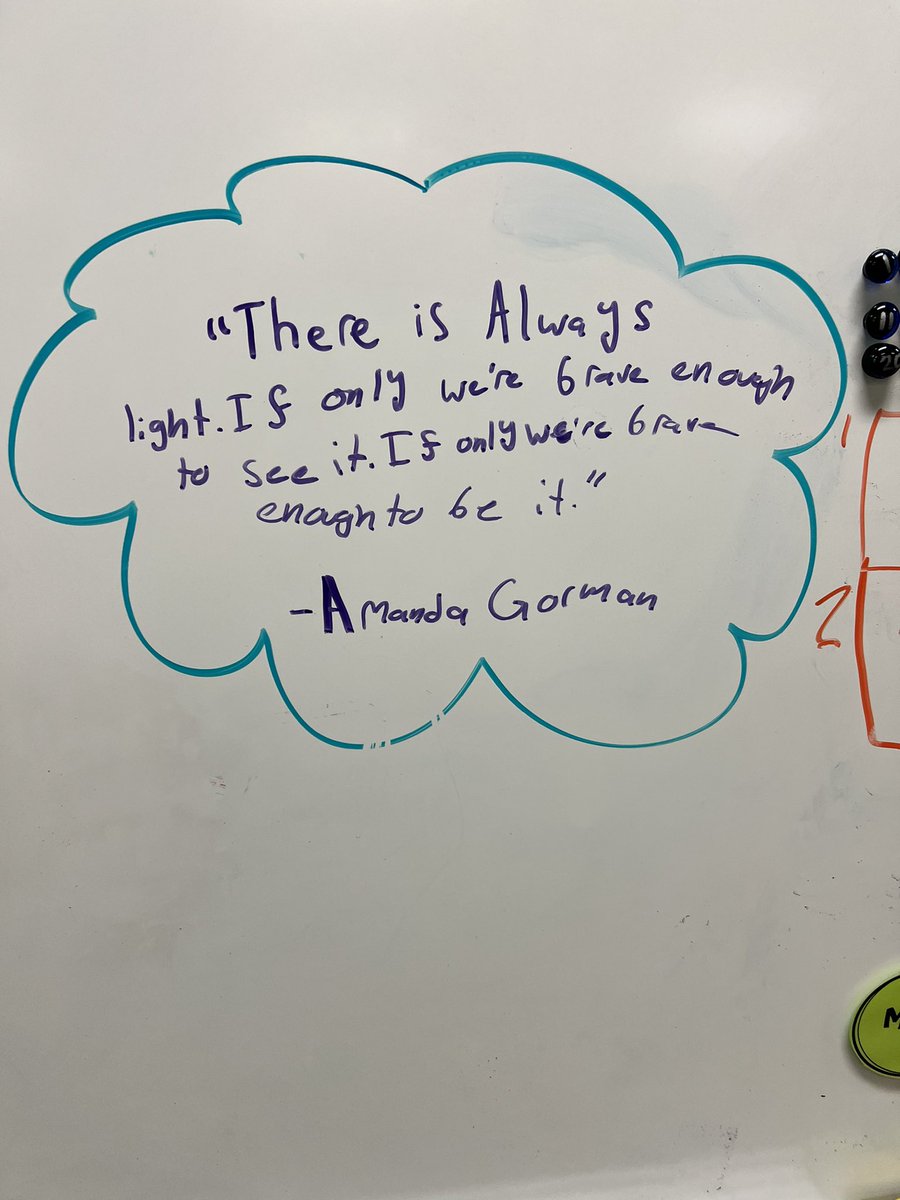 “There is Always
light. If only we're brave enough
to see it. If only we're brave
enough to be it.”
-Amanda Gorman
11
20
1
2
M